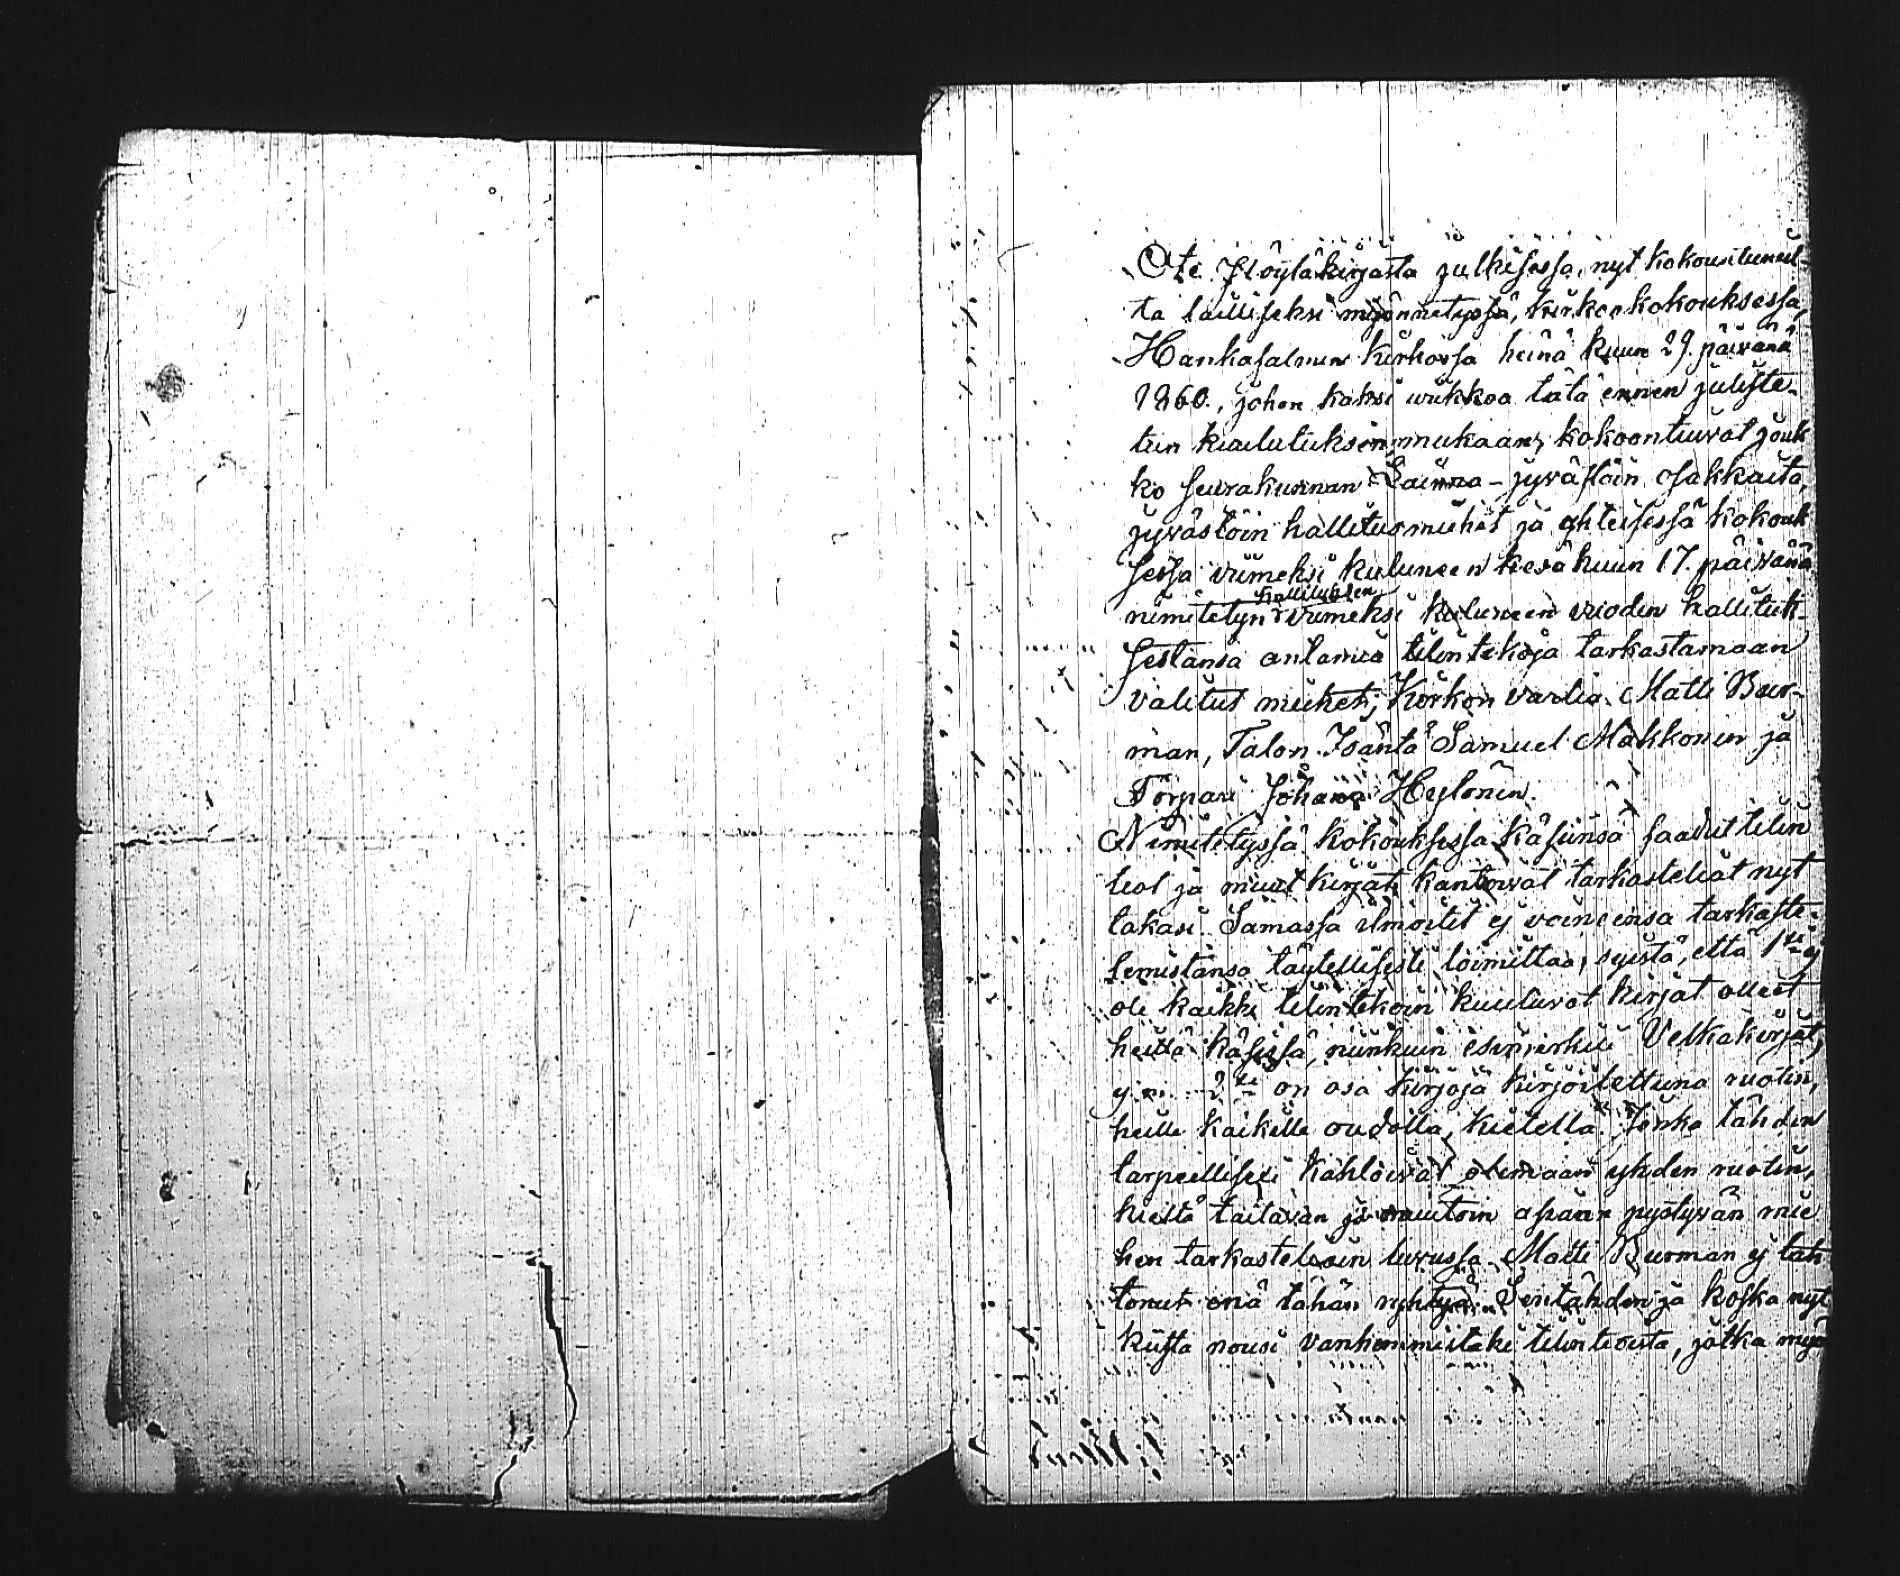 Ote Pöytäkirjasta julkisessa, nyt kokoontuneil-
ta lailliseksi myönnetyssä, kirkonkokouksessa,
Hankasalmen kirkossa heinä kuun 29. päivänä
1860., johon kaksi wiikkoa tätä ennen juliste-
tun kuulutuksen mukaan, kokoontuivat jouk
ko seurakunnan Laina-jyvästöin osakkaita,
jyvästöin hallitusmiehet ja yhteisessä kokouk
sessa viimeksi kuluneen kesäkuun 17. päivänä
hallituksen
nimitetyn viimeksi kuluneen vuoden hallituk-
sestansa antamia tilintekoja tarkastamaan
valitut miehet; Kirkon vartia Matti Bur-
man, Talon Isäntä Samuel Makkonen ja
Torpari Johana Hytönen.
Nimitetyssä kokouksessa käsiinsä saadut tilin
teot ja muut kirjat kantoivat tarkasteliat nyt
takasi. Samassa ilmoitit ej voineensa tarkaste-
lemistansa täytellisesti toimittaa, syistä, että 1ksi ej
ole kaikki tilintekoin kuuluvat kirjat olleet
heidä käsissä, niinkuin esimerkiksi Velkakirjat,
y.m. 2ksi on osa kirjoja kirjoitettuna ruotin,
heille kaikille oudolla kielellä. Jonka tähden
tarpeelliseksi kahtoivat olemaan yhden ruotin,
kieltä taitavan ja muutoin apaan pystyvän mie
hen tarkasteliain luvussa. Matti Burman ej tah
tonut enä tähän ryhtyä. Sentähden ja koska nyt
kiista nousi vanhemmistaki tilinteoista, jotka myö